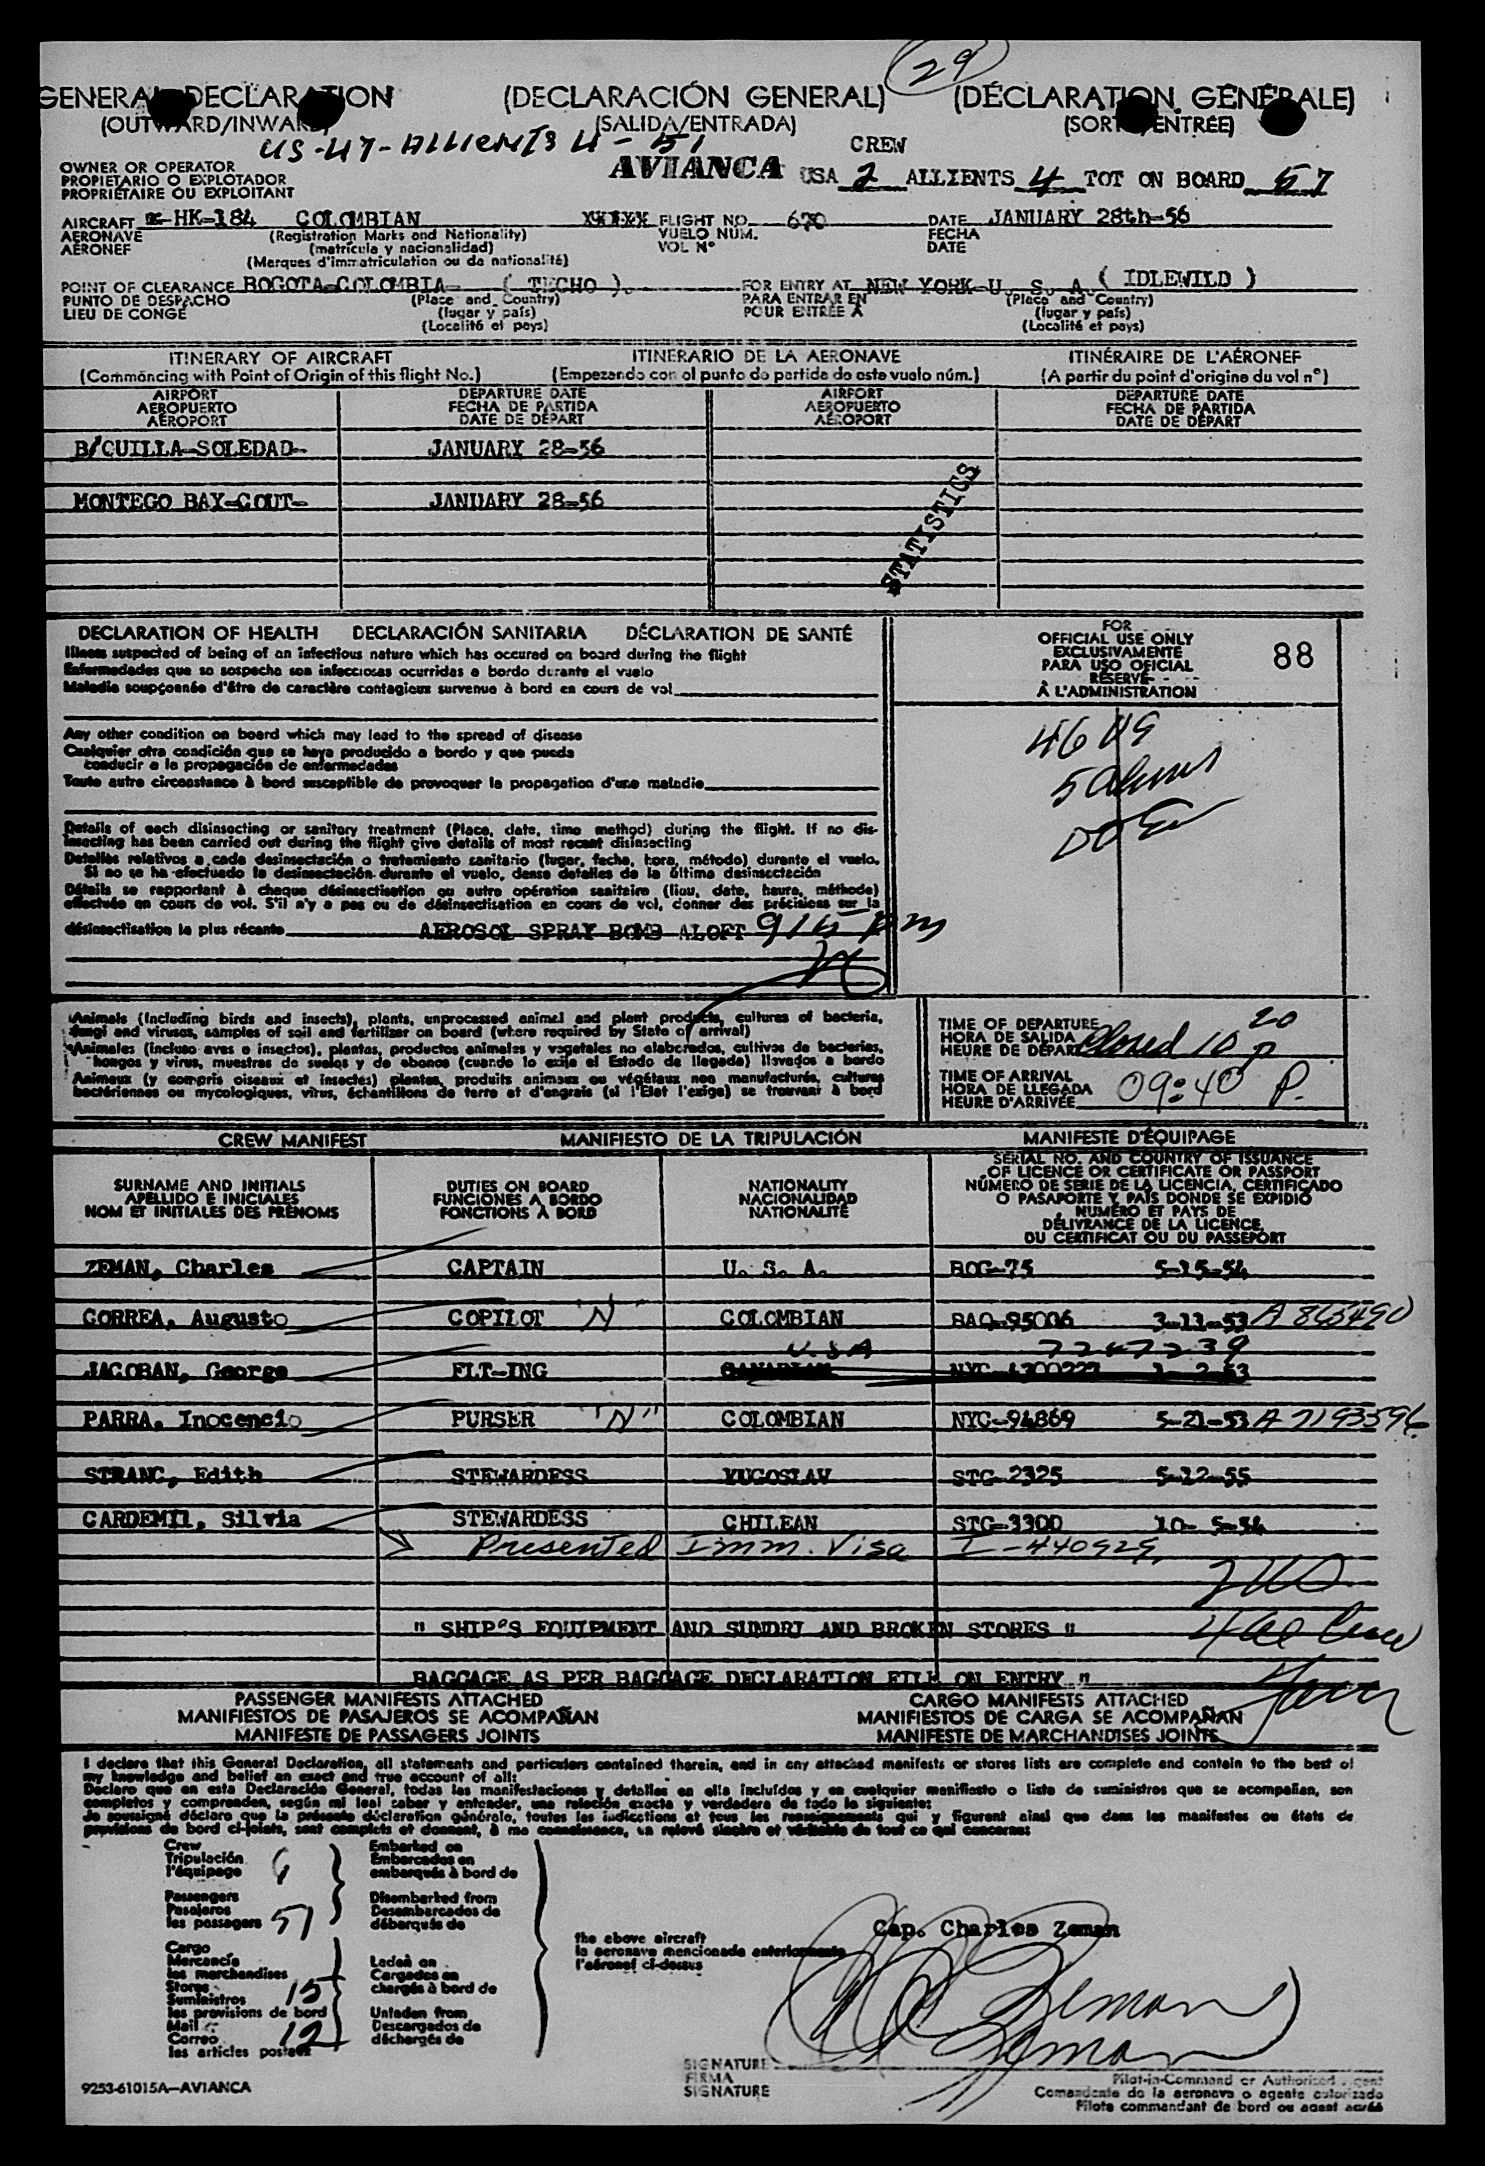 29
GENERAL DECLARATION (DECLARACIÓN GENERAL) (DÉCLARATION GÉNÉRALE)
(OUTWARD/INWARD) (SALIDA/ENTRADA) (SORTIE/ENTRÉE)
US-47-ALLIENTS 4-51
OWNER OR OPERATOR AVIANCA CREW
PROPIETARIO O EXPLOTADOR USA 2 ALLIENTS 4 TOT ON BOARD 57
PROPRIÉTAIRE OU EXPLOITANT
AIRCRAFT HK-184 COLOMBIAN XXXXX FLIGHT NO. 670 DATE JANUARY 28th-56
AERONAVE (Registration Marks and Nationality) VUELO NUM. FECHA
AÉRONEF (matrícula y nacionalidad) VOL N° DATE
(Marques d'immatriculation ou de nationalité)
POINT OF CLEARANCE BOGOTA-COLOMBIA- ( TECHO ). FOR ENTRY AT NEW YORK-U. S. A. ( IDLEWILD )
PUNTO DE DESPACHO (Place and Country) PARA ENTRAR EN (Place and Country)
LIEU DE CONGÉ (lugar y país) POUR ENTRÉE À (lugar y país)
(Localité et pays) (Localité et pays)
ITINERARY OF AIRCRAFT ITINERARIO DE LA AERONAVE ITINÉRAIRE DE L'AÉRONEF
(Commencing with Point of Origin of this flight No.) (Empezando con el punto de partida de este vuelo núm.) (A partir du point d'origine du vol n°)
AIRPORT DEPARTURE DATE AIRPORT DEPARTURE DATE
AEROPUERTO FECHA DE PARTIDA AEROPUERTO FECHA DE PARTIDA
AÉROPORT DATE DE DÉPART AÉROPORT DATE DE DÉPART
B/QUILLA-SOLEDAD- JANUARY 28-56
MONTEGO BAY-GOUT- JANUARY 28-56
STATISTICS
DECLARATION OF HEALTH DECLARACIÓN SANITARIA DÉCLARATION DE SANTÉ
Illness suspected of being of an infectious nature which has occured on board during the flight
Enfermedades que se sospecha son infecciosas ocurridas a bordo durante el vuelo
Maladie soupçonnée d'être de caractère contagieux survenue à bord en cours de vol
FOR
OFFICIAL USE ONLY
EXCLUSIVAMENTE
PARA USO OFICIAL
RÉSERVÉ
À L'ADMINISTRATION
88
46 US
Any other condition on board which may lead to the spread of disease
Cualquier otra condición que se haya producido a bordo y que pueda
conducir a la propagación de enfermedades
Toute autre circonstance à bord susceptible de provoquer la propagation d'une maladie
Details of each disinsecting or sanitary treatment (Place, date, time method) during the flight. If no dis-
insecting has been carried out during the flight give details of most recent disinsecting
Detalles relativos a cada desinsectación o tratamiento sanitario (lugar, fecha, hora, método) durante el vuelo.
Si no se ha efectuado la desinsectación durante el vuelo, dense detalles de la última desinsectación
Détails se rapportant à chaque désinsectisation ou autre opération sanitaire (lieu, date, heure, méthode)
effectuée en cours de vol. S'il n'y a pas eu de désinsectisation en cours de vol, donner des précisions sur la
désinsectisation la plus récente AEROSOL SPRAY BOMB ALOFT 915 pm
Animals (Including birds and insects), plants, unprocessed animal and plant products, cultures of bacteria,
fungi and viruses, samples of soil and fertilizer on board (where required by State of arrival)
Animales (incluso aves e insectos), plantas, productos animales y vegetales no elaborados, cultivos de bacterias,
hongos y virus, muestras de suelos y de abonos (cuando lo exija el Estado de llegada) llevados a bordo
Animaux (y compris oiseaux et insectes) plantes, produits animaux ou végétaux non manufacturés, cultures
bactériennes ou mycologiques, virus, échantillons de terre et d'engrais (si l'État l'exige) se trouvant à bord
TIME OF DEPARTURE
HORA DE SALIDA
HEURE DE DÉPART Closed 10 20 P
TIME OF ARRIVAL
HORA DE LLEGADA
HEURE D'ARRIVÉE 09:40 P.
CREW MANIFEST MANIFIESTO DE LA TRIPULACIÓN MANIFESTE D'ÉQUIPAGE
SURNAME AND INITIALS DUTIES ON BOARD NATIONALITY SERIAL NO. AND COUNTRY OF ISSUANCE
APELLIDO E INICIALES FUNCIONES A BORDO NACIONALIDAD OF LICENCE OR CERTIFICATE OR PASSPORT
NOM ET INITIALES DES PRÉNOMS FONCTIONS À BORD NATIONALITÉ NÚMERO DE SERIE DE LA LICENCIA, CERTIFICADO
O PASAPORTE Y PAÍS DONDE SE EXPIDIÓ
NUMÉRO ET PAYS DE
DÉLIVRANCE DE LA LICENCE,
DU CERTIFICAT OU DU PASSEPORT
ZEMAN, Charles CAPTAIN U. S. A. BOG-75 5-15-54
CORREA, Augusto COPILOT "N" COLOMBIAN BAQ-95006 3-13-53 A 865490
USA 7247239
JACOBAN, George FLT-ING CANADIAN NYC-4300227 1-2-53
PARRA, Inocencio PURSER "N" COLOMBIAN NYC-94869 5-21-53 A 7193596
STRANC, Edith STEWARDESS YUGOSLAV STG-2325 5-12-55
CARDEMIL, Silvia STEWARDESS CHILEAN STG-3300 10-5-54
Presented Imm. Visa I-440929.
" SHIP'S EQUIPMENT AND SUNDRY AND BROKEN STORES "
BAGGAGE AS PER BAGGAGE DECLARATION FILE ON ENTRY "
PASSENGER MANIFESTS ATTACHED CARGO MANIFESTS ATTACHED
MANIFIESTOS DE PASAJEROS SE ACOMPAÑAN MANIFIESTOS DE CARGA SE ACOMPAÑAN
MANIFESTE DE PASSAGERS JOINTS MANIFESTE DE MARCHANDISES JOINTS
I declare that this General Declaration, all statements and particulars contained therein, and in any attached manifests or stores lists are complete and contain to the best of
my knowledge and belief an exact and true account of all:
Declaro que en esta Declaración General, todas las manifestaciones y detalles en ella incluídos y en cualquier manifiesto o lista de suministros que se acompañan, son
completos y comprenden, según mi leal saber y entender, una relación exacta y verdadera de todo lo siguiente:
Je soussigné déclare que la présente déclaration générale, toutes les indications et tous les renseignements qui y figurent ainsi que dans les manifestes ou états de
provisions de bord ci-joints, sont complets et donnent, à ma connaissance, un relevé sincère et véritable de tout ce qui concerne:
Crew Embarked on
Tripulación Embarcados en
l'équipage 6 embarqués à bord de
Passengers Disembarked from
Pasajeros Desembarcados de
les passagers 51 débarqués de
Cargo
Mercancía Laden on
les marchandises Cargados en
Stores chargés à bord de
Suministros 15
les provisions de bord Unladen from
Mail Descargados de
Correo 12 déchargés de
les articles postaux
the above aircraft
la aeronave mencionada anteriormente
l'aéronef ci-dessus
Cap. Charles Zeman
Zeman
Zeman
SIGNATURE
FIRMA
SIGNATURE
Pilot-in-Command or Authorized Agent
Comandante de la aeronave o agente autorizado
Pilote commandant de bord ou agent accédé
9253-61015A—AVIANCA